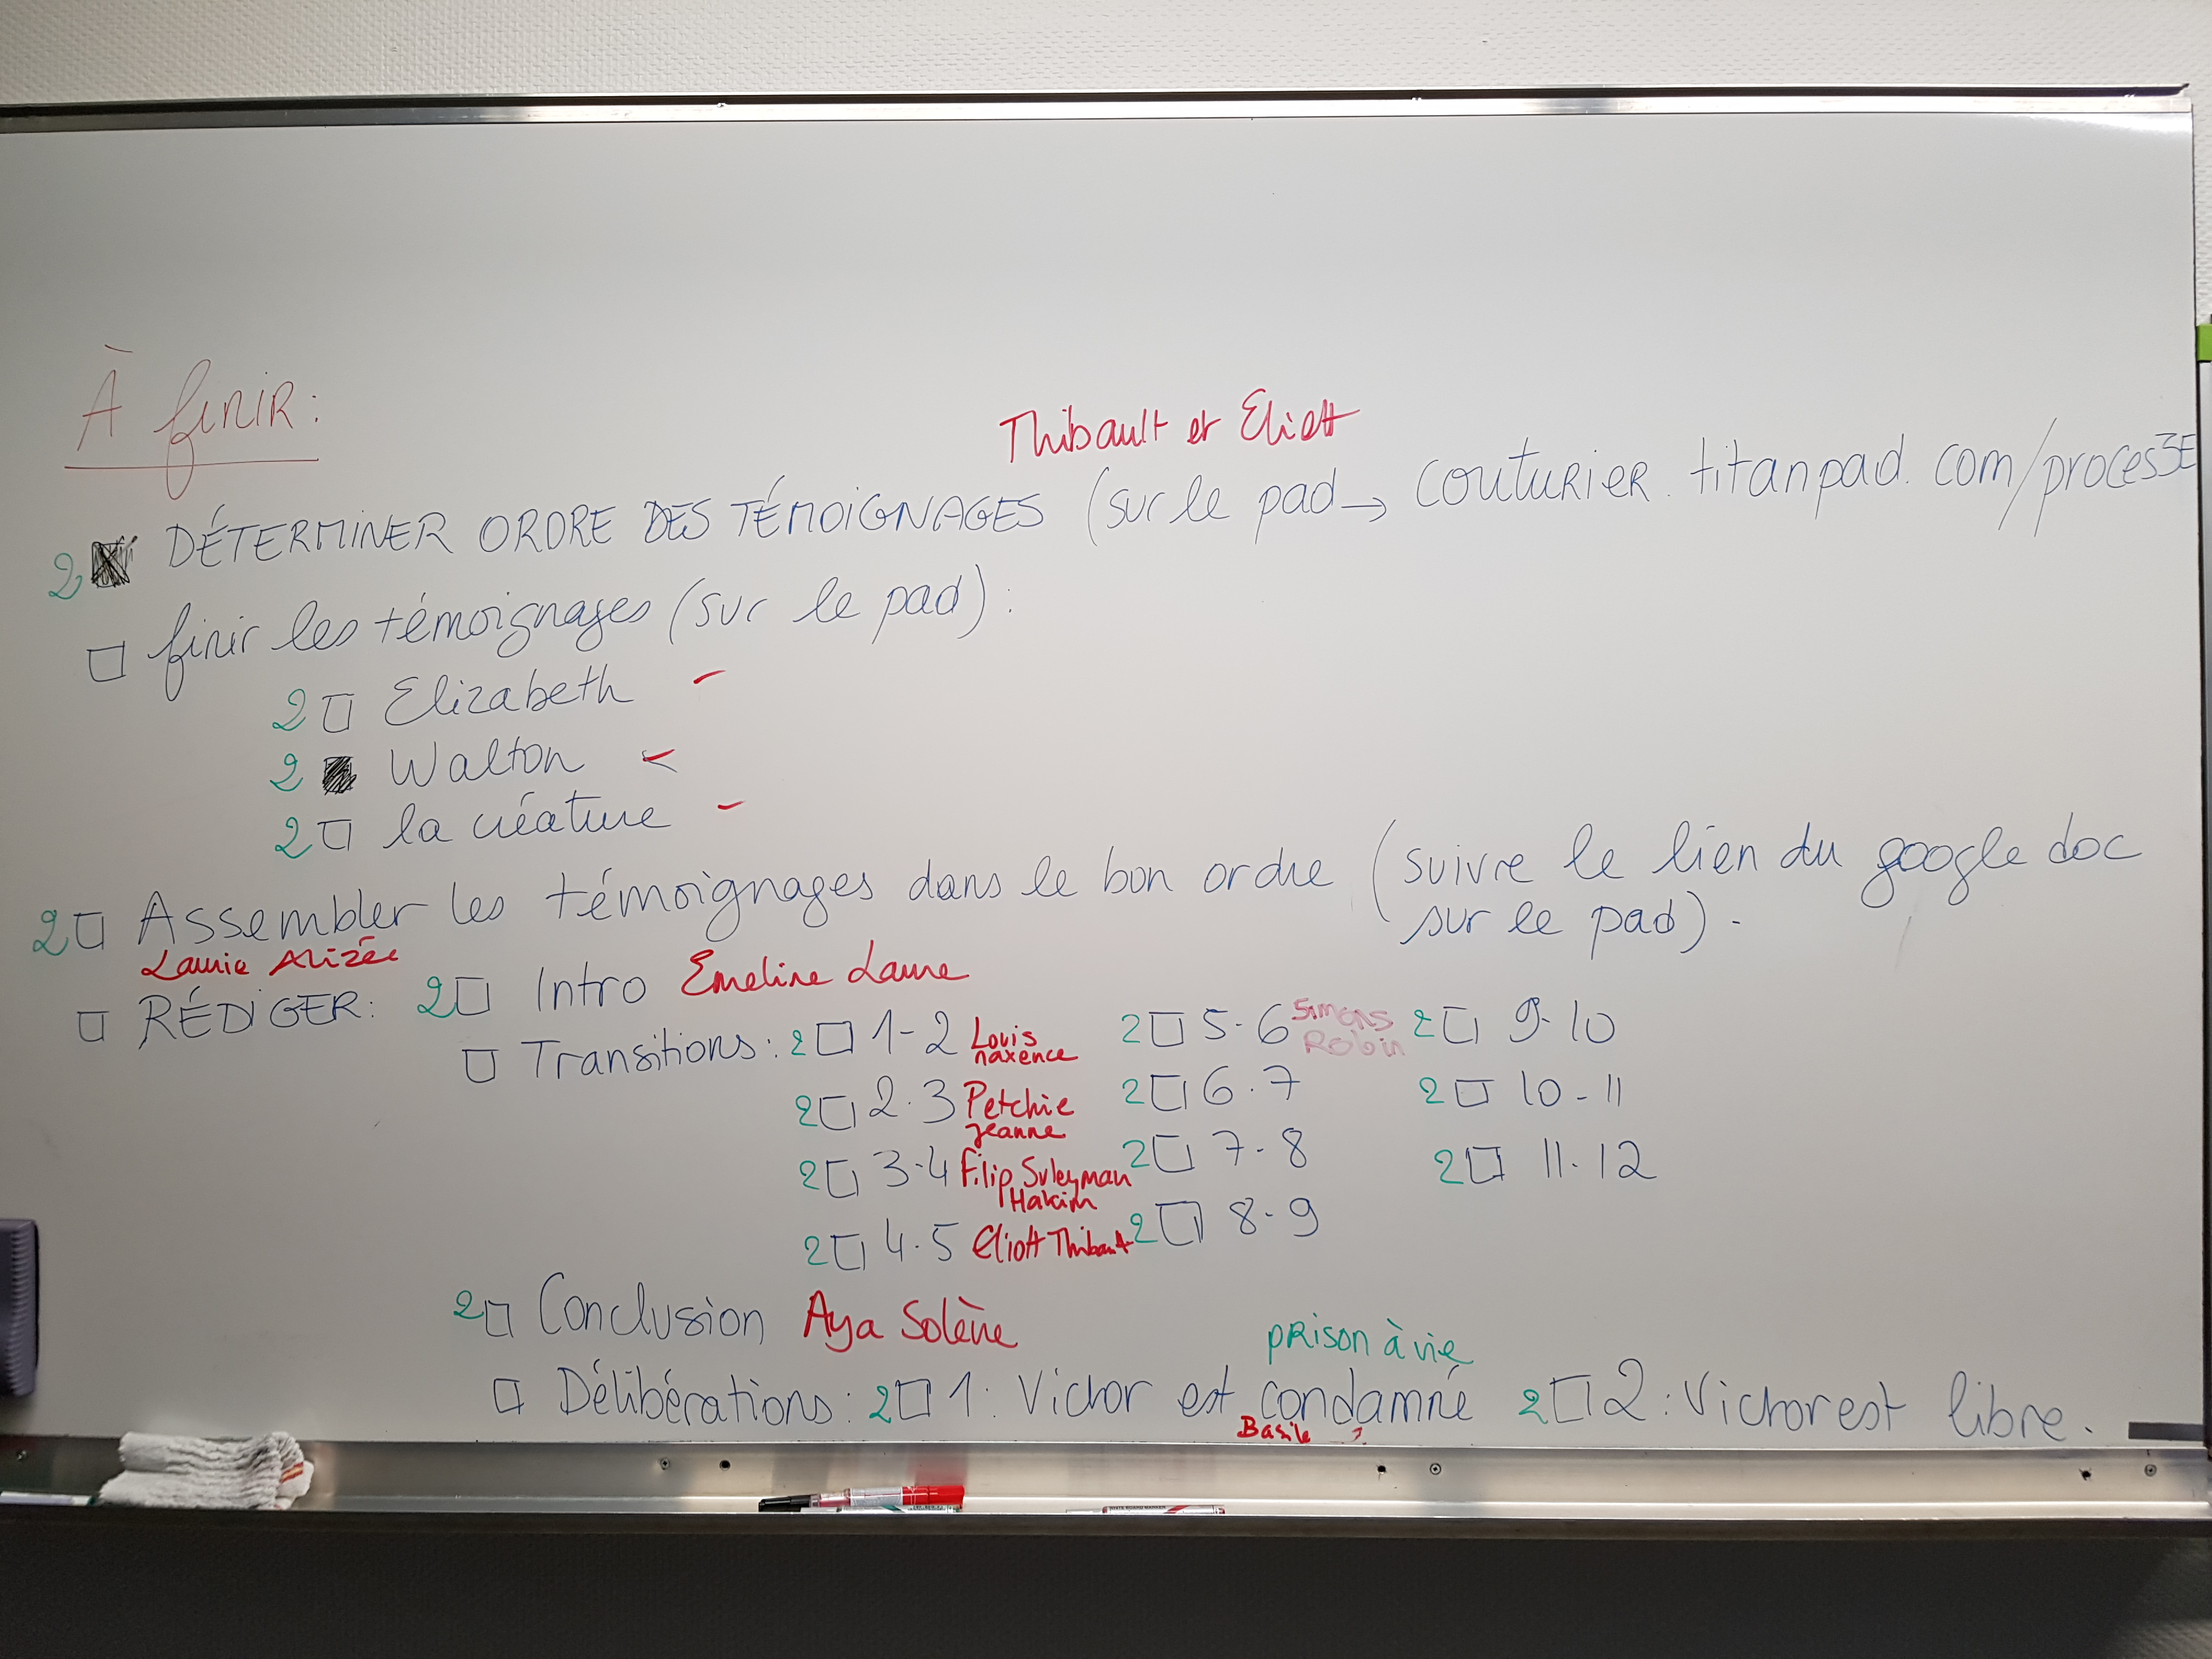 À finir :
Thibault et Eliott
2 DÉTERMINER ORDRE DES TÉMOIGNAGES (sur le pad → couturier.titanpad.com/proces3E
□ finir les témoignages (sur le pad) :
2 □ Elizabeth -
2 Walton -
2 □ la créature -
2 □ Assembler les témoignages dans le bon ordre (suivre le lien du google doc
sur le pad).
Laurie Alizée
□ RÉDIGER : 2 □ Intro Emeline Laure
□ Transitions : 2 □ 1-2 Louis Maxence 2 □ 5-6 Simons Robin 2 □ 9-10
2 □ 2-3 Petchie Jeanne 2 □ 6-7 2 □ 10-11
2 □ 3-4 Filip Suleyman Hakim 2 □ 7-8 2 □ 11-12
2 □ 4-5 Eliott Thibaut 2 □ 8-9
2 □ Conclusion Aya Solène
prison à vie
□ Délibérations : 2 □ 1 : Victor est condamné 2 □ 2 : Victor est libre.
Basile